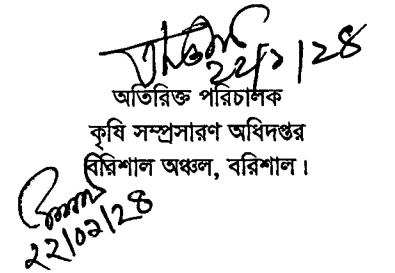 ২২/১/২৪
অতিরিক্ত পরিচালক
কৃষি সম্প্রসারণ অধিদপ্তর
বরিশাল অঞ্চল, বরিশাল।
২২/০১/২৪